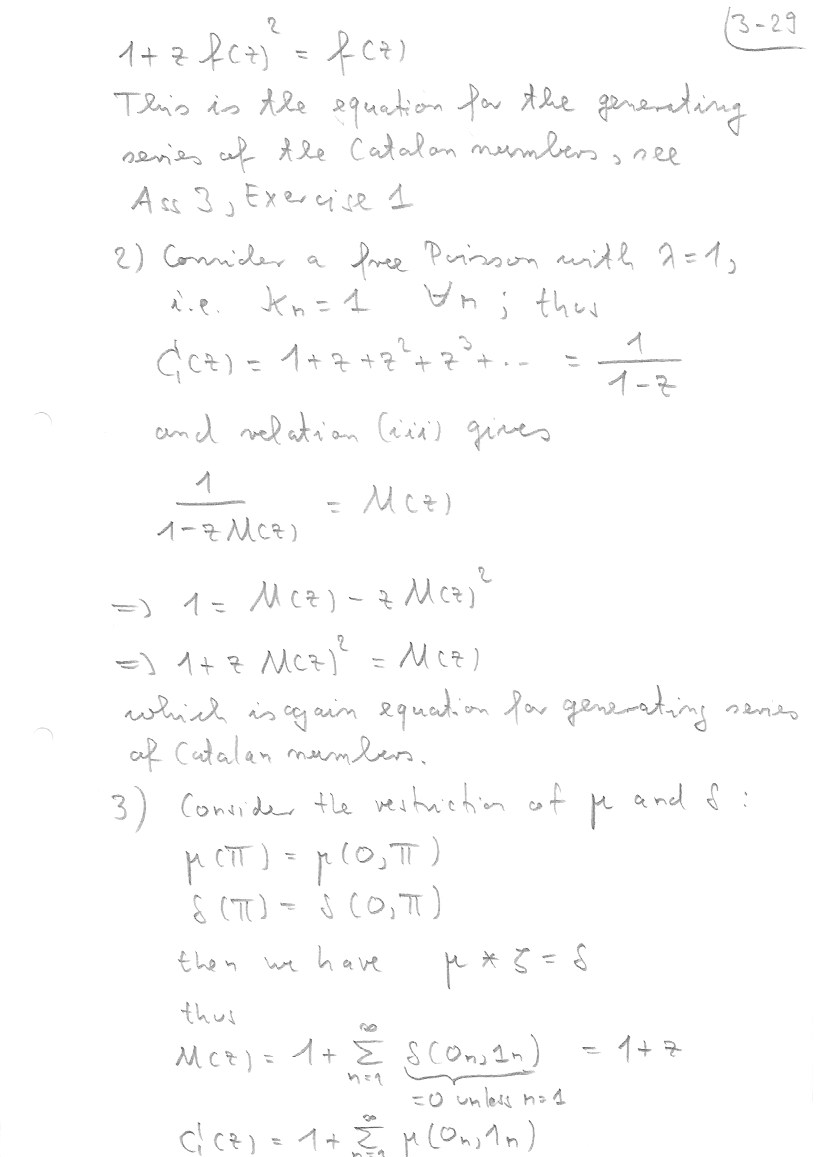 3-29
1 + z f(z)² = f(z)
This is the equation for the generating
series of the Catalan numbers, see
Ass 3, Exercise 1
2) Consider a free Poisson with λ=1,
i.e. κₙ = 1 ∀n ; thus
C(z) = 1 + z + z² + z³ + ... = 1/(1-z)
and relation (iii) gives
1/(1-zM(z)) = M(z)
=> 1 = M(z) - z M(z)²
=> 1 + z M(z)² = M(z)
which is again equation for generating series
of Catalan numbers.
3) Consider the restriction of μ and δ :
μ(π) = μ(0,π)
δ(π) = δ(0,π)
then we have μ * ζ = δ
thus
M(z) = 1 + ∑_{n=1}^∞ δ(0ₙ,1ₙ) = 1 + z
=0 unless n=1
C(z) = 1 + ∑_{n=1}^∞ μ(0ₙ,1ₙ)